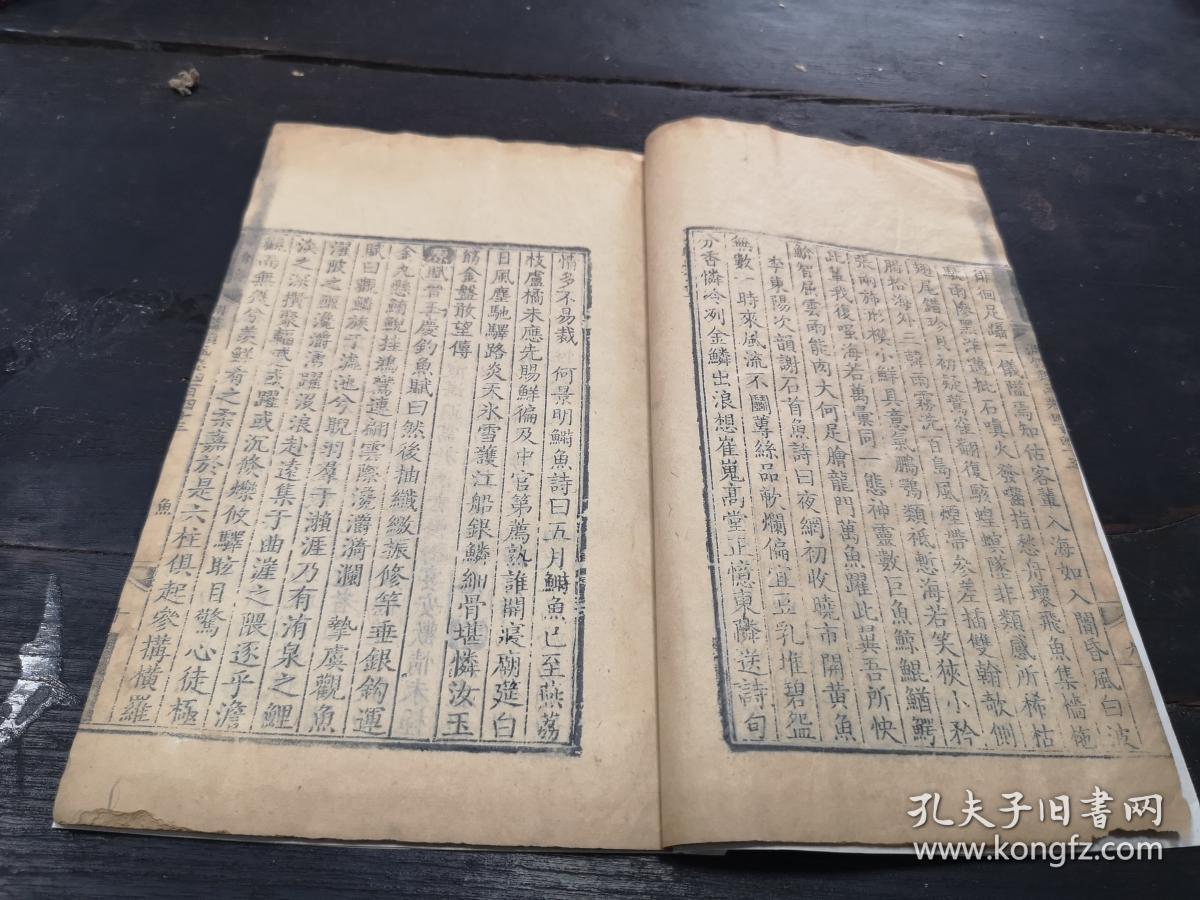 徘徊足躡一儀隘焉知估客輩入海如入闇昏風白波
駭南條黑洋讋批石嗔火發彗指愁舟壞飛魚集檣桅
翅尾錯珍貝初疑驚隼翻復駭蝗螟墜非類感所稀枯
腊拾海外三韓雨霧流百島風煙帶參差插雙翰欹側
張兩旆形模小鮮具意氣鵬鶚類祗慙海若笑狹小矜
此輩我復望海若萬彙同一態神靈數巨魚鯨鯤鰌鰐
鯨智屠雲雨能肉大何足膾龍門萬魚躍此異吾所快
李東陽次韻謝石首魚詩曰夜網初收曉市開黃魚
無數一時來風流不鬬蓴絲品軟爛偏宜豆乳堆碧盌
分香憐冷冽金鱗出浪想崔嵬高堂正憶東鄰送詩句
情多不易裁 何景明鰣魚詩曰五月鰣魚已至燕荔
枝盧橘未應先賜鮮徧及中官第薦熟誰開寢廟筵白
日風塵馳驛路炎天氷雪護江船銀鱗細骨堪憐汝玉
筯金盤敢望傳
賦晉王慶釣魚賦曰然後抽纖繳振修竿垂銀鈎運
金丸懸鮪鯢挂鴻鸞連翩雲際瀺灂漪瀾 摯虞觀魚
賦曰觀鱗族于洿池兮睨羽羣于瀨涯乃有洧泉之鯉
濯陂之鱮瀺灂涌躍沒浪赴遠集于曲漄之隈逐乎澹
淡之深攢聚輻或躍或沉倏爍攸驛眩目驚心徒極
觀而無獲兮羨鮮有之柔嘉於是六柱俱起參搆橫羅
魚
孔夫子旧书网
www.kongfz.com